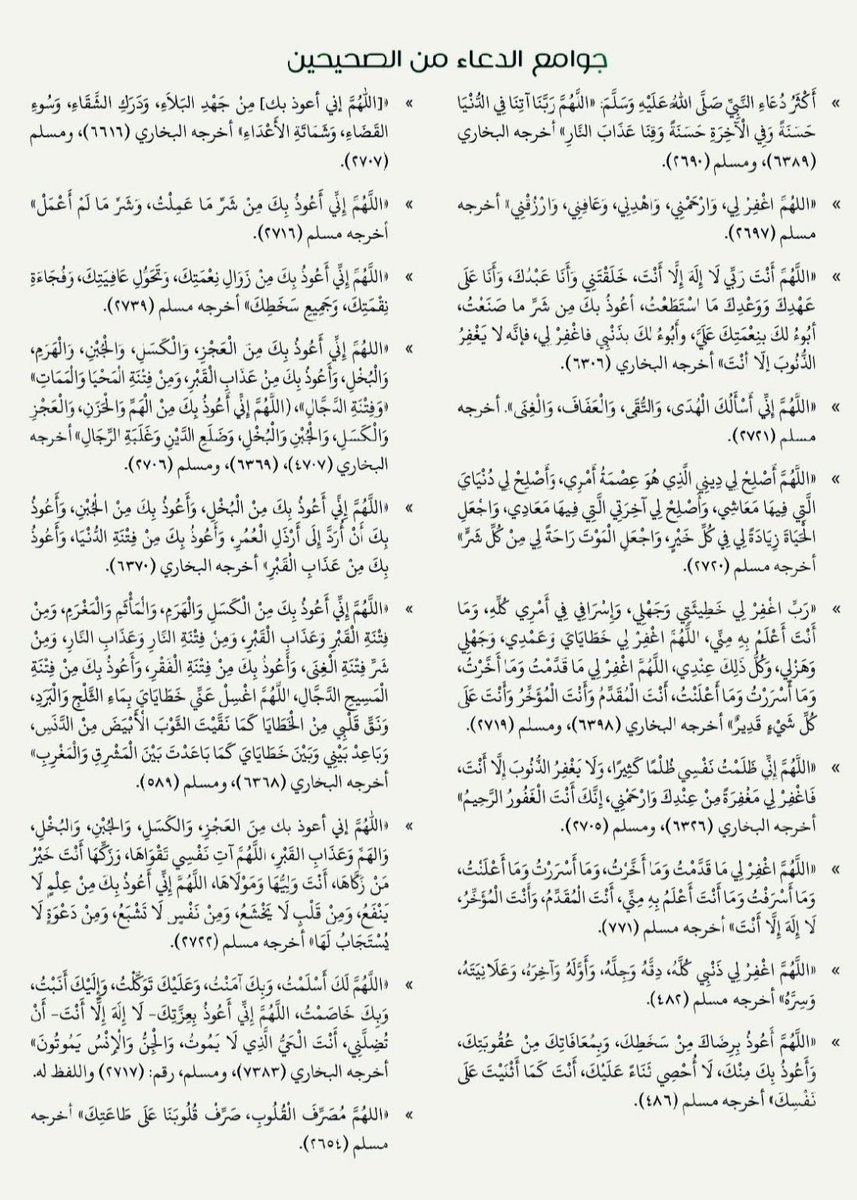 جوامع الدعاء من الصحيحين
» أَكْثَرُ دُعَاءِ النَّبِيِّ صَلَّى اللهُ عَلَيْهِ وَسَلَّمَ: «اللَّهُمَّ رَبَّنَا آتِنَا فِي الدُّنْيَا
حَسَنَةً وَفِي الْآخِرَةِ حَسَنَةً وَقِنَا عَذَابَ النَّارِ» أخرجه البخاري
(٦٣٨٩)، ومسلم (٢٦٩٠).
» «اللهُمَّ اغْفِرْ لِي، وَارْحَمْنِي، وَاهْدِنِي، وَعَافِنِي، وَارْزُقْنِي» أخرجه
مسلم (٢٦٩٧).
» «اللَّهُمَّ أَنْتَ رَبِّي لَا إِلَهَ إِلَّا أَنْتَ، خَلَقْتَنِي وَأَنَا عَبْدُكَ، وَأَنَا عَلَى
عَهْدِكَ وَوَعْدِكَ مَا اسْتَطَعْتُ، أعُوذُ بكَ مِن شَرِّ ما صَنَعْتُ،
أبُوءُ لكَ بنِعْمَتِكَ عَلَيَّ، وأَبُوءُ لكَ بذَنْبِي فاغْفِرْ لِي، فإنَّه لا يَغْفِرُ
الذُّنُوبَ إلَّا أنْتَ» أخرجه البخاري (٦٣٠٦).
» «اللَّهُمَّ إِنِّي أَسْأَلُكَ الْهُدَى، وَالتُّقَى، وَالْعَفَافَ، وَالْغِنَى». أخرجه
مسلم (٢٧٢١).
» «اللَّهُمَّ أَصْلِحْ لِي دِينِي الَّذِي هُوَ عِصْمَةُ أَمْرِي، وَأَصْلِحْ لِي دُنْيَايَ
الَّتِي فِيهَا مَعَاشِي، وَأَصْلِحْ لِي آخِرَتِي الَّتِي فِيهَا مَعَادِي، وَاجْعَلِ
الْحَيَاةَ زِيَادَةً لِي فِي كُلِّ خَيْرٍ، وَاجْعَلِ الْمَوْتَ رَاحَةً لِي مِنْ كُلِّ شَرٍّ»
أخرجه مسلم (٢٧٢٠).
» «رَبِّ اغْفِرْ لِي خَطِيئَتِي وَجَهْلِي، وَإِسْرَافِي فِي أَمْرِي كُلِّهِ، وَمَا
أَنْتَ أَعْلَمُ بِهِ مِنِّي، اللَّهُمَّ اغْفِرْ لِي خَطَايَايَ وَعَمْدِي، وَجَهْلِي
وَهَزْلِي، وَكُلُّ ذَلِكَ عِنْدِي، اللَّهُمَّ اغْفِرْ لِي مَا قَدَّمْتُ وَمَا أَخَّرْتُ،
وَمَا أَسْرَرْتُ وَمَا أَعْلَنْتُ، أَنْتَ الْمُقَدِّمُ وَأَنْتَ الْمُؤَخِّرُ وَأَنْتَ عَلَى
كُلِّ شَيْءٍ قَدِيرٌ» أخرجه البخاري (٦٣٩٨)، ومسلم (٢٧١٩).
» «اللَّهُمَّ إِنِّي ظَلَمْتُ نَفْسِي ظُلْمًا كَثِيرًا، وَلَا يَغْفِرُ الذُّنُوبَ إِلَّا أَنْتَ،
فَاغْفِرْ لِي مَغْفِرَةً مِنْ عِنْدِكَ وَارْحَمْنِي، إِنَّكَ أَنْتَ الْغَفُورُ الرَّحِيمُ»
أخرجه البخاري (٦٣٢٦)، ومسلم (٢٧٠٥).
» «اللَّهُمَّ اغْفِرْ لِي مَا قَدَّمْتُ وَمَا أَخَّرْتُ، وَمَا أَسْرَرْتُ وَمَا أَعْلَنْتُ،
وَمَا أَسْرَفْتُ وَمَا أَنْتَ أَعْلَمُ بِهِ مِنِّي، أَنْتَ الْمُقَدِّمُ، وَأَنْتَ الْمُؤَخِّرُ،
لَا إِلَهَ إِلَّا أَنْتَ» أخرجه مسلم (٧٧١).
» «اللَّهُمَّ اغْفِرْ لِي ذَنْبِي كُلَّهُ، دِقَّهُ وَجِلَّهُ، وَأَوَّلَهُ وَآخِرَهُ، وَعَلَانِيَتَهُ،
وَسِرَّهُ» أخرجه مسلم (٤٨٢).
» «اللَّهُمَّ أَعُوذُ بِرِضَاكَ مِنْ سَخَطِكَ، وَبِمُعَافَاتِكَ مِنْ عُقُوبَتِكَ،
وَأَعُوذُ بِكَ مِنْكَ، لَا أُحْصِي ثَنَاءً عَلَيْكَ، أَنْتَ كَمَا أَثْنَيْتَ عَلَى
نَفْسِكَ» أخرجه مسلم (٤٨٦).
» «[اللَّهُمَّ إني أعوذ بك] مِنْ جَهْدِ البَلاَءِ، وَدَرَكِ الشَّقَاءِ، وَسُوءِ
القَضَاءِ، وَشَمَاتَةِ الأَعْدَاءِ» أخرجه البخاري (٦٦١٦)، ومسلم
(٢٧٠٧).
» «اللَّهُمَّ إِنِّي أَعُوذُ بِكَ مِنْ شَرِّ مَا عَمِلْتُ، وَشَرِّ مَا لَمْ أَعْمَلْ»
أخرجه مسلم (٢٧١٦).
» «اللَّهُمَّ إِنِّي أَعُوذُ بِكَ مِنْ زَوَالِ نِعْمَتِكَ، وَتَحَوُّلِ عَافِيَتِكَ، وَفُجَاءَةِ
نِقْمَتِكَ، وَجَمِيعِ سَخَطِكَ» أخرجه مسلم (٢٧٣٩).
» «اللهُمَّ إِنِّي أَعُوذُ بِكَ مِنَ الْعَجْزِ، وَالْكَسَلِ، وَالْجُبْنِ، وَالْهَرَمِ،
وَالْبُخْلِ، وَأَعُوذُ بِكَ مِنْ عَذَابِ الْقَبْرِ، وَمِنْ فِتْنَةِ الْمَحْيَا وَالْمَمَاتِ»
«وَفِتْنَةِ الدَّجَّالِ»، (اللَّهُمَّ إِنِّي أَعُوذُ بِكَ مِنْ الْهَمِّ وَالْحَزَنِ، وَالْعَجْزِ
وَالْكَسَلِ، وَالْجُبْنِ وَالْبُخْلِ، وَضَلَعِ الدَّيْنِ وَغَلَبَةِ الرِّجَالِ» أخرجه
البخاري (٤٧٠٧)، (٦٣٦٩)، ومسلم (٢٧٠٦).
» «اللَّهُمَّ إِنِّي أَعُوذُ بِكَ مِنْ الْبُخْلِ، وَأَعُوذُ بِكَ مِنْ الْجُبْنِ، وَأَعُوذُ
بِكَ أَنْ أُرَدَّ إِلَى أَرْذَلِ الْعُمُرِ، وَأَعُوذُ بِكَ مِنْ فِتْنَةِ الدُّنْيَا، وَأَعُوذُ
بِكَ مِنْ عَذَابِ الْقَبْرِ» أخرجه البخاري (٦٣٧٠).
» «اللَّهُمَّ إِنِّي أَعُوذُ بِكَ مِنْ الْكَسَلِ وَالْهَرَمِ، وَالْمَأْثَمِ وَالْمَغْرَمِ، وَمِنْ
فِتْنَةِ الْقَبْرِ وَعَذَابِ الْقَبْرِ، وَمِنْ فِتْنَةِ النَّارِ وَعَذَابِ النَّارِ، وَمِنْ
شَرِّ فِتْنَةِ الْغِنَى، وَأَعُوذُ بِكَ مِنْ فِتْنَةِ الْفَقْرِ، وَأَعُوذُ بِكَ مِنْ فِتْنَةِ
الْمَسِيحِ الدَّجَّالِ، اللَّهُمَّ اغْسِلْ عَنِّي خَطَايَايَ بِمَاءِ الثَّلْجِ وَالْبَرَدِ،
وَنَقِّ قَلْبِي مِنْ الْخَطَايَا كَمَا نَقَّيْتَ الثَّوْبَ الْأَبْيَضَ مِنْ الدَّنَسِ،
وَبَاعِدْ بَيْنِي وَبَيْنَ خَطَايَايَ كَمَا بَاعَدْتَ بَيْنَ الْمَشْرِقِ وَالْمَغْرِبِ»
أخرجه البخاري (٦٣٦٨)، ومسلم (٥٨٩).
» «اللَّهُمَّ إني أعوذ بك مِنَ العَجْزِ، وَالكَسَلِ، وَالجُبْنِ، وَالبُخْلِ،
وَالهَمِّ وَعَذَابِ القَبْرِ، اللَّهُمَّ آتِ نَفْسِي تَقْوَاهَا، وَزَكِّهَا أَنْتَ خَيْرُ
مَنْ زَكَّاهَا، أَنْتَ وَلِيُّهَا وَمَوْلَاهَا، اللَّهُمَّ إِنِّي أَعُوذُ بِكَ مِنْ عِلْمٍ لَا
يَنْفَعُ، وَمِنْ قَلْبٍ لَا يَخْشَعُ، وَمِنْ نَفْسٍ لَا تَشْبَعُ، وَمِنْ دَعْوَةٍ لَا
يُسْتَجَابُ لَهَا» أخرجه مسلم (٢٧٢٢).
» «اللَّهُمَّ لَكَ أَسْلَمْتُ، وَبِكَ آمَنْتُ، وَعَلَيْكَ تَوَكَّلْتُ، وَإِلَيْكَ أَنَبْتُ،
وَبِكَ خَاصَمْتُ، اللَّهُمَّ إِنِّي أَعُوذُ بِعِزَّتِكَ- لَا إِلَهَ إِلَّا أَنْتَ- أَنْ
تُضِلَّنِي، أَنْتَ الْحَيُّ الَّذِي لَا يَمُوتُ، وَالْجِنُّ وَالْإِنْسُ يَمُوتُونَ»
أخرجه البخاري (٧٣٨٣)، ومسلم، رقم: (٢٧١٧) واللفظ له.
» «اللهُمَّ مُصَرِّفَ الْقُلُوبِ، صَرِّفْ قُلُوبَنَا عَلَى طَاعَتِكَ» أخرجه
مسلم (٢٦٥٤).